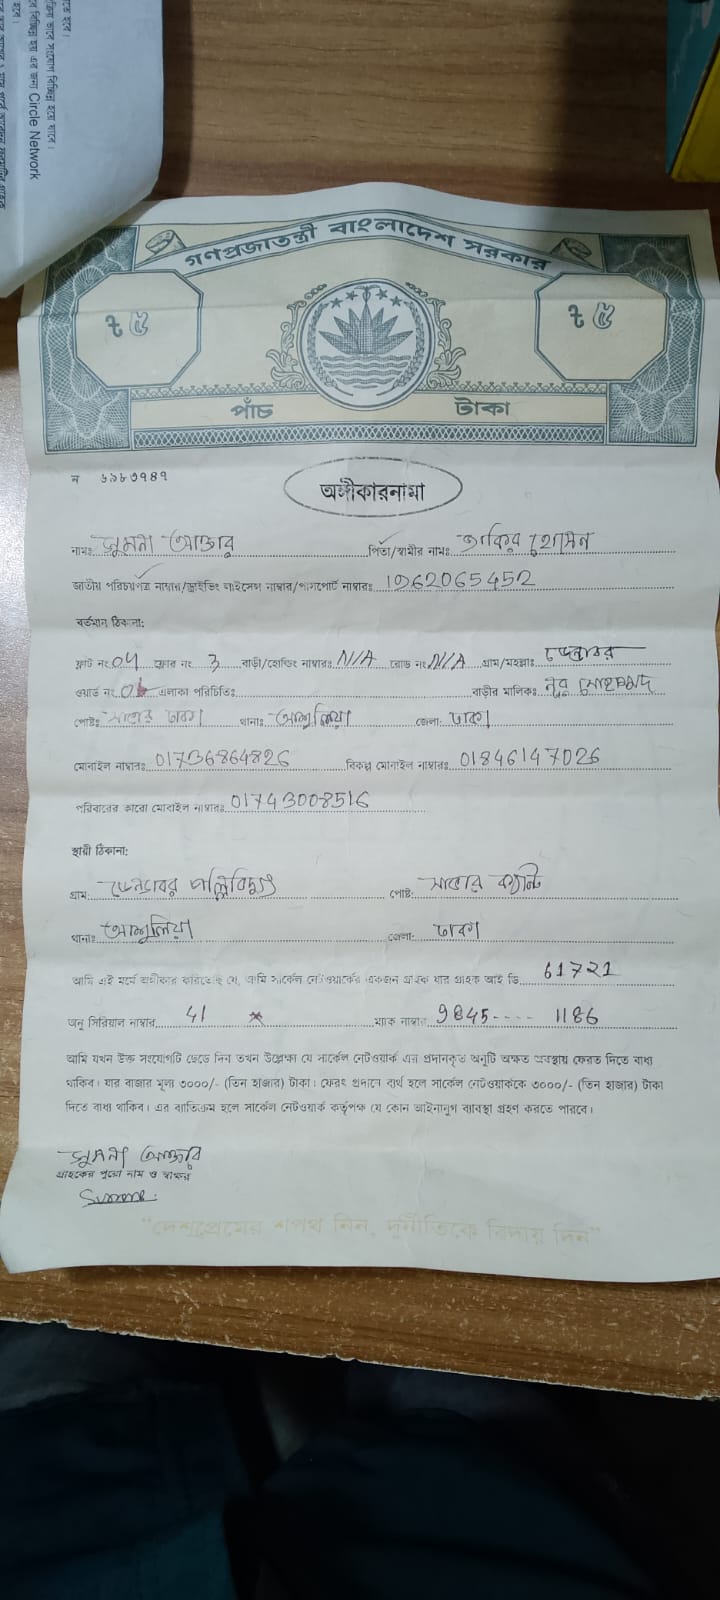 তে হবে।
ক্রিয় ভাবে সংযোগ বিচ্ছিন্ন হয়ে যাবে।
বিচ্ছিন্ন হয় এর জন্য Circle Network
হবে।
গণপ্রজাতন্ত্রী বাংলাদেশ সরকার
৳ ৫ ৳ ৫
পাঁচ টাকা
ন ৬৯৮৩৭৪৭
অঙ্গীকারনামা
নামঃ সুমনা আক্তার পিতা/স্বামীর নামঃ জাকির হোসেন
জাতীয় পরিচয়পত্র নাম্বার/ড্রাইভিং লাইসেন্স নাম্বার/পাসপোর্ট নাম্বারঃ 1962065452
বর্তমান ঠিকানা:
ফ্লাট নং 04 ফ্লোর নং 3 বাড়ী/হোল্ডিং নাম্বারঃ N/A রোড নং N/A গ্রাম/মহল্লাঃ ডেন্ডাবর
ওয়ার্ড নং এলাকা পরিচিতিঃ বাড়ীর মালিকঃ নুর মোহাম্মদ
পোষ্টঃ সাভার ঢাকা। থানাঃ আশুলিয়া জেলা: ঢাকা
মোবাইল নাম্বারঃ 01736864826 বিকল্প মোবাইল নাম্বারঃ 01846147026
পরিবারের কারো মোবাইল নাম্বারঃ 01743008516
স্থায়ী ঠিকানা:
গ্রাম: ডেন্ডাবর পল্লিবিদ্যুৎ পোষ্ট: সাভার ক্যান্ট
থানাঃ আশুলিয়া জেলা: ঢাকা
আমি এই মর্মে অঙ্গীকার করিতেছি যে, আমি সার্কেল নেটওয়ার্কের একজন গ্রাহক যার গ্রাহক আই ডি 61721
অনু সিরিয়াল নাম্বার 41 ম্যাক নাম্বার 9845---- 1186
আমি যখন উক্ত সংযোগটি ছেড়ে দিব তখন উল্লেক্ষ্য যে সার্কেল নেটওয়ার্ক এর প্রদানকৃত অনুটি অক্ষত অবস্থায় ফেরত দিতে বাধ্য
থাকিব। যার বাজার মূল্য ৩০০০/- (তিন হাজার) টাকা। ফেরৎ প্রদানে ব্যর্থ হলে সার্কেল নেটওয়ার্ককে ৩০০০/- (তিন হাজার) টাকা
দিতে বাধ্য থাকিব। এর ব্যতিক্রম হলে সার্কেল নেটওয়ার্ক কর্তৃপক্ষ যে কোন আইনানুগ ব্যবস্থা গ্রহণ করতে পারবে।
সুমনা আক্তার
গ্রাহকের পুরো নাম ও স্বাক্ষর
"দেশপ্রেমের শপথ নিন, দুর্নীতিকে বিদায় দিন"